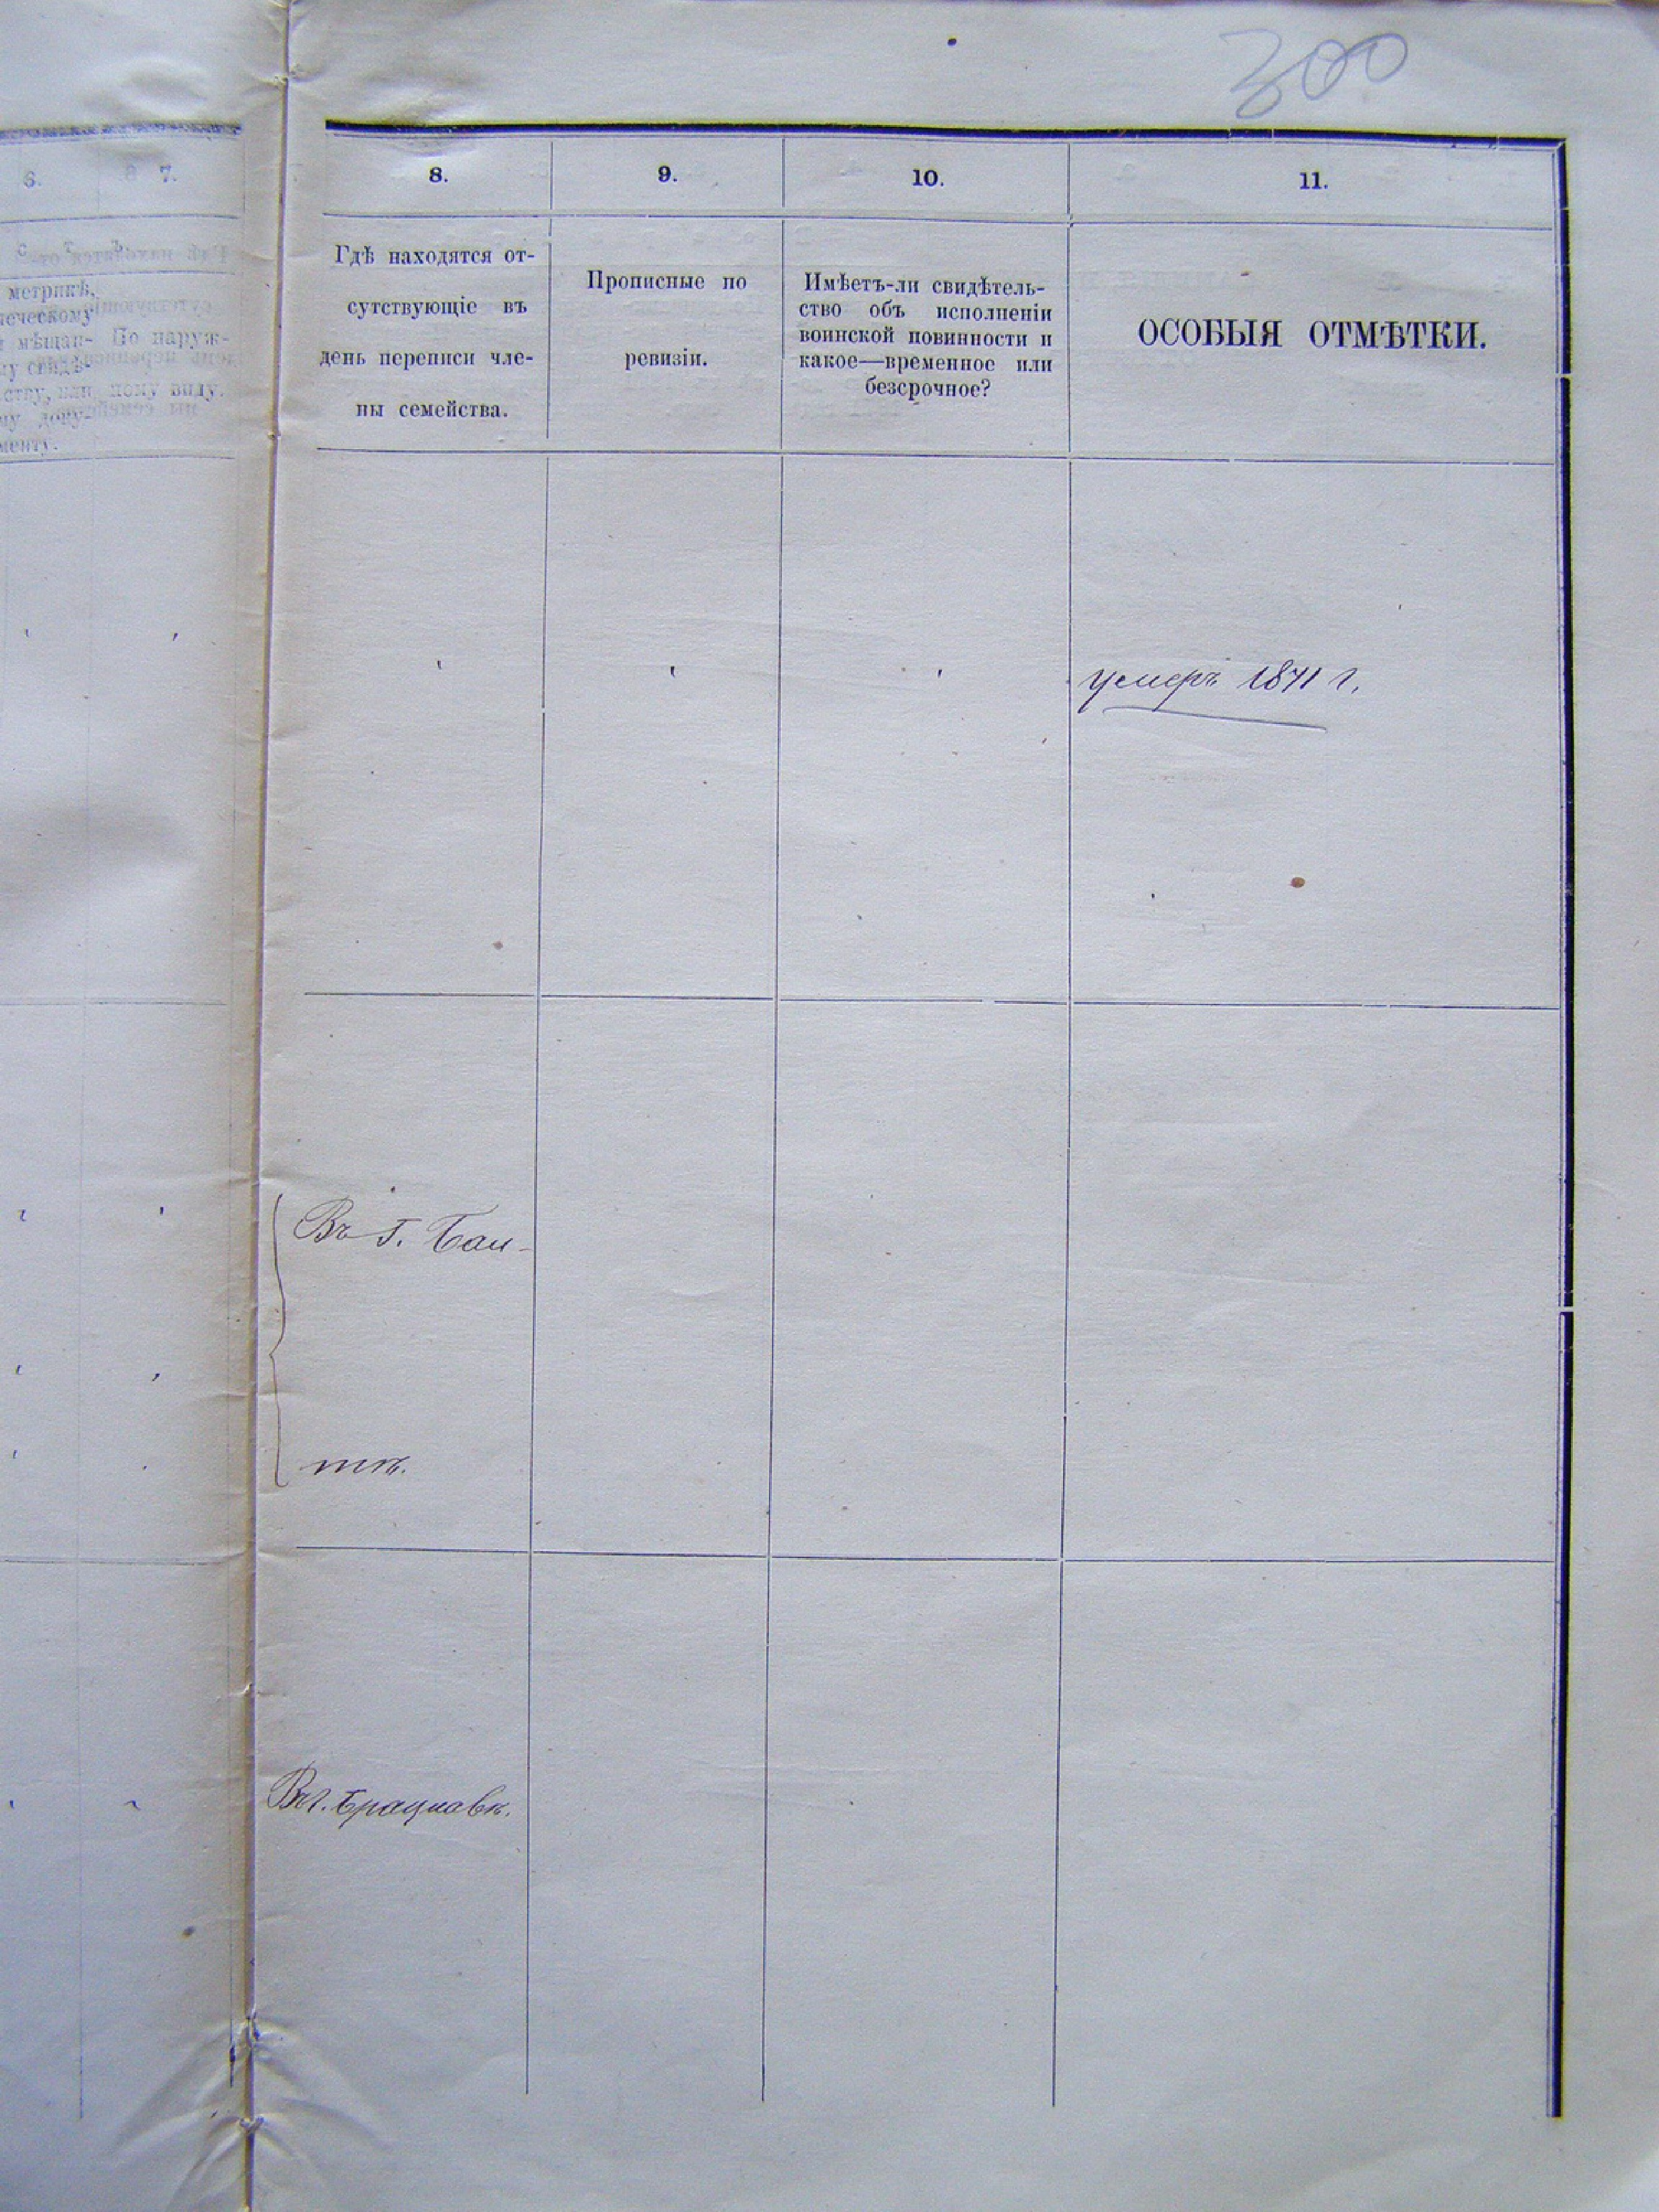 300
6.
7.
8.
9.
10.
11.
с т ъ
метрикѣ,
мѣщан-
По наруж-
ству, или
ному виду.
му доку-
менту.
Гдѣ находятся от-
сутствующіе въ
день переписи чле-
ны семейства.
Прописные по
ревизіи.
Имѣетъ-ли свидѣтель-
ство объ исполненіи
воинской повинности и
какое—временное или
безсрочное?
ОСОБЫЯ ОТМѢТКИ.
умеръ 1871 г.
Въ г. Бал-
тѣ.
Въ г. Брацлавѣ.